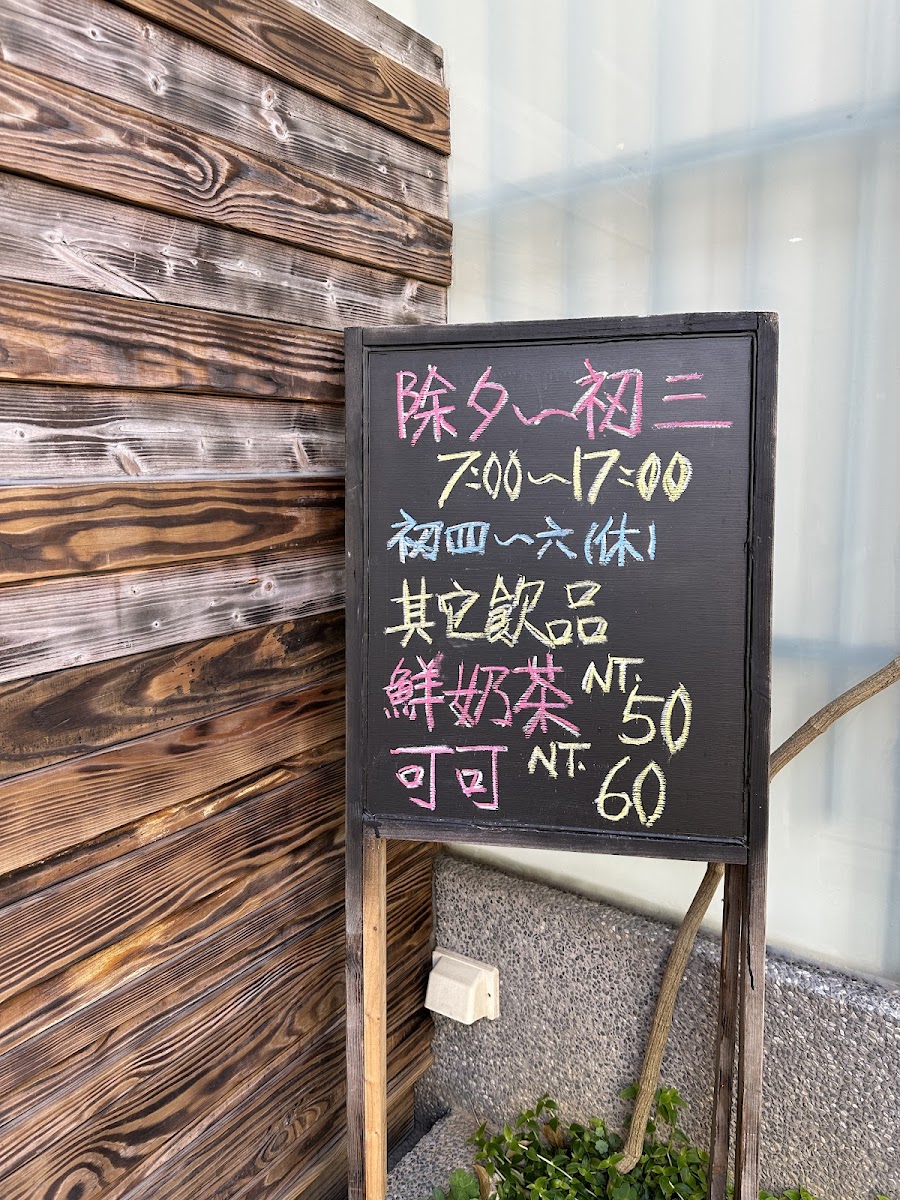 除夕~初三
7:00~17:00
初四~六(休)
其它飲品
鮮奶茶 NT. 50
可可 NT. 60